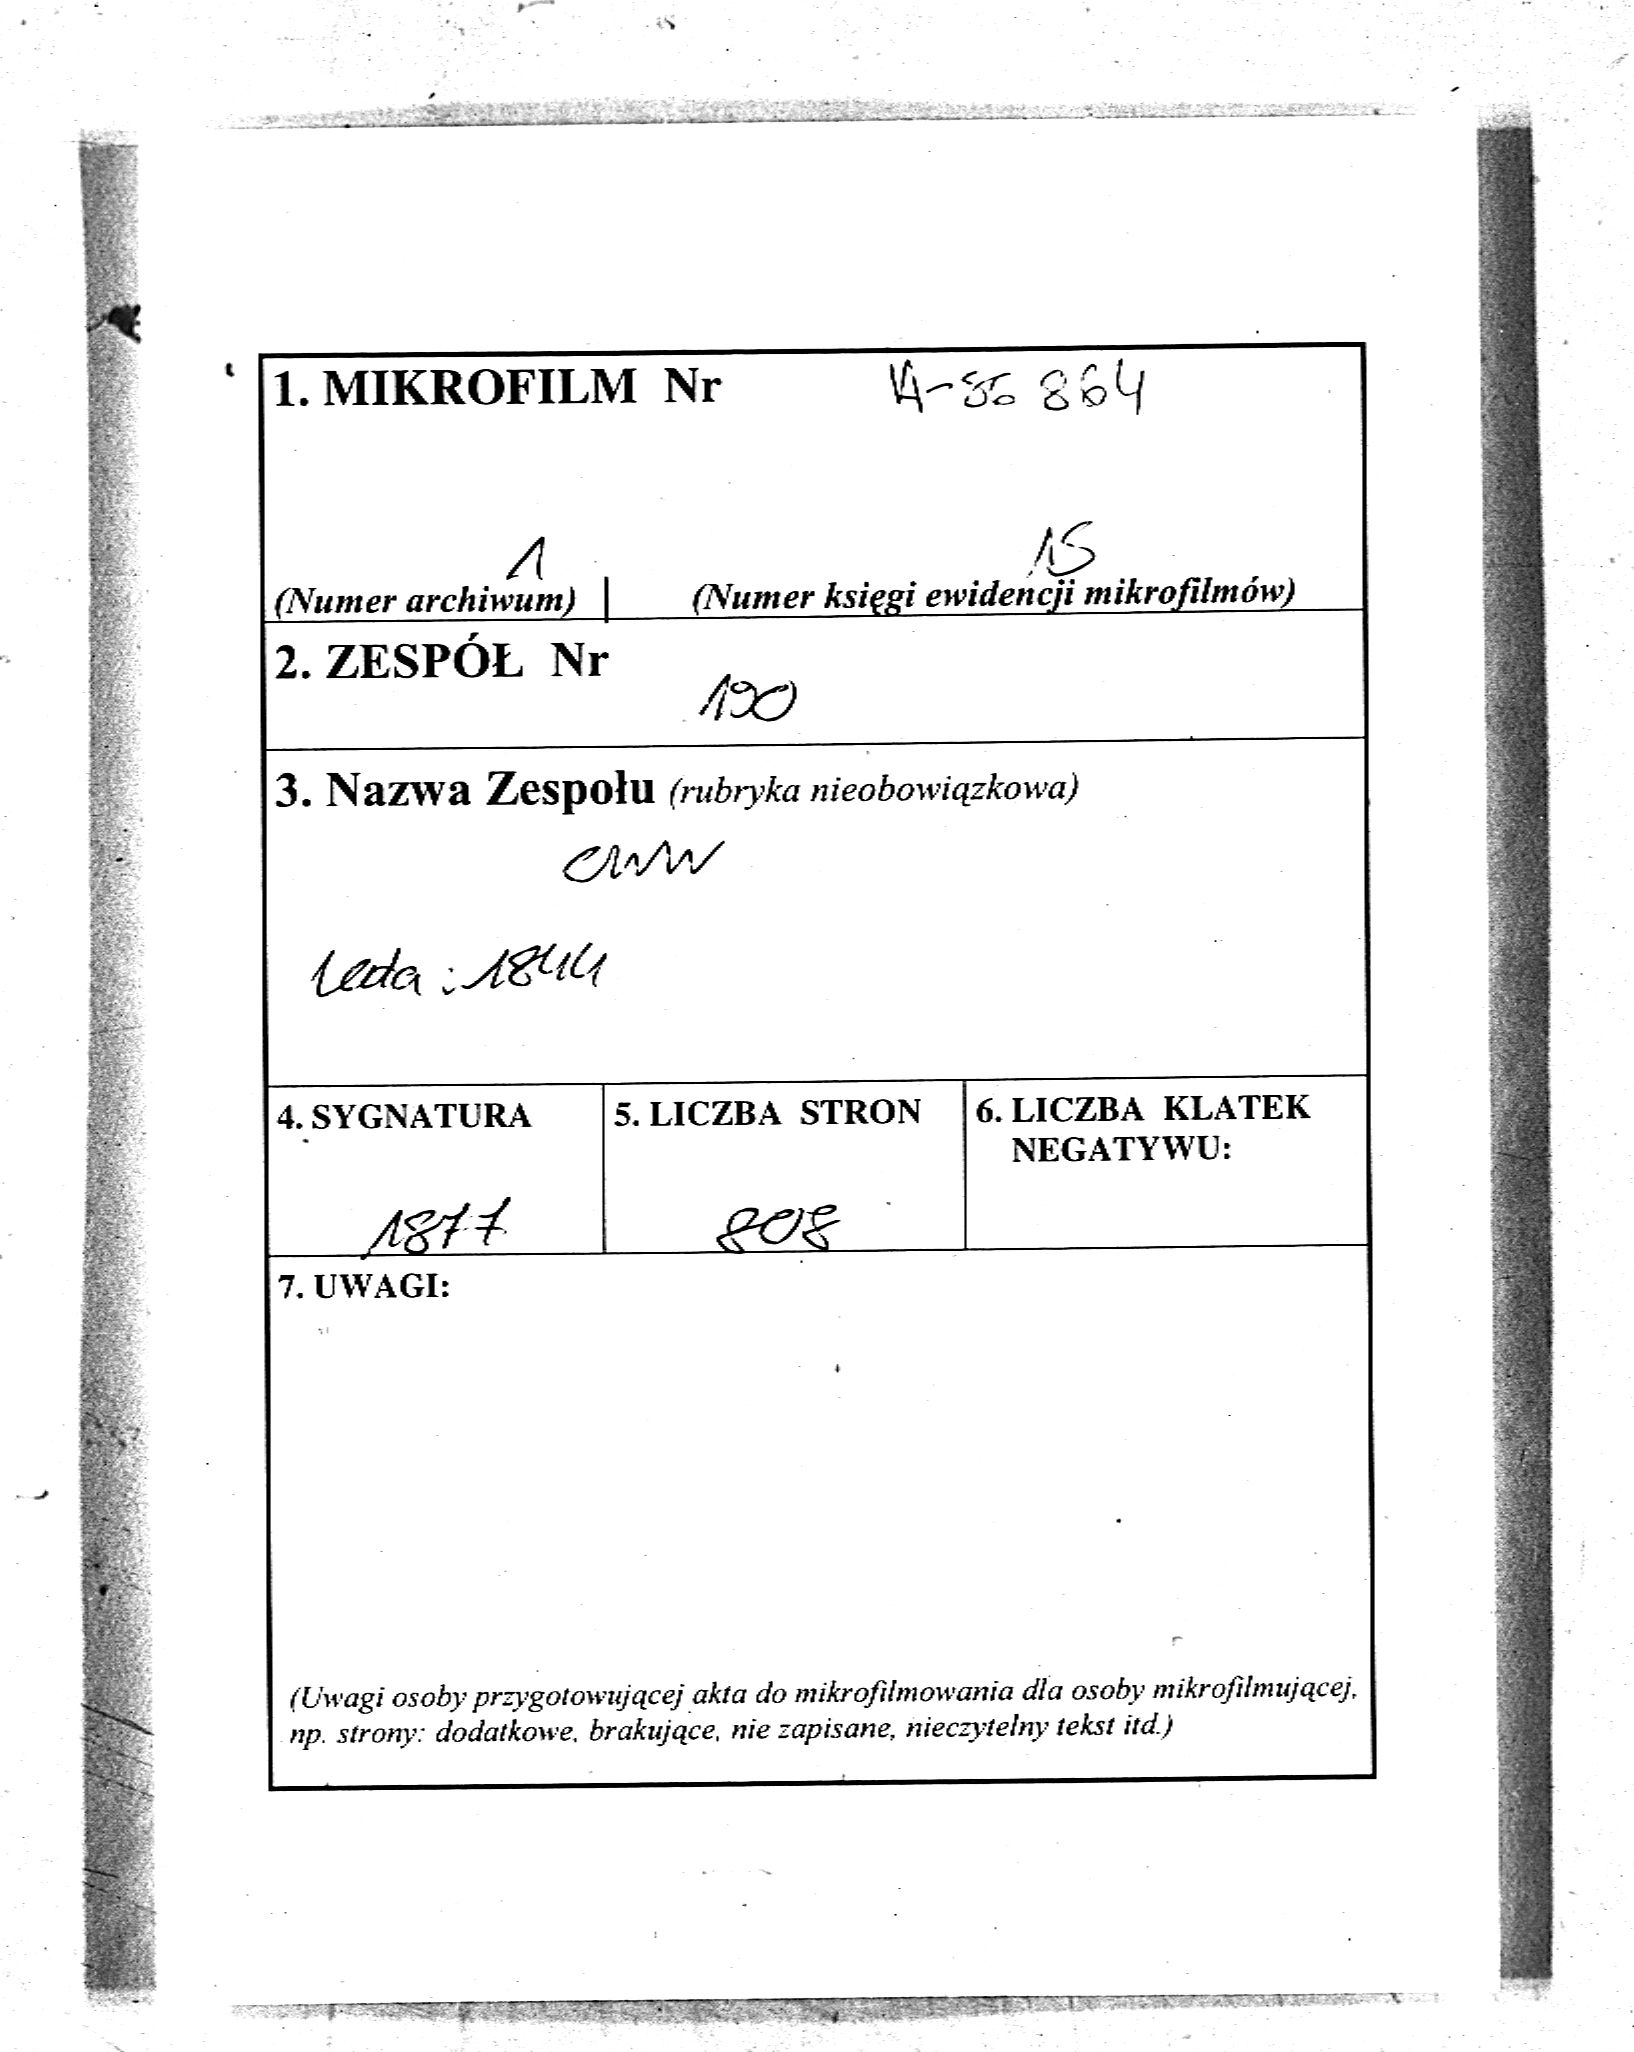 1. MIKROFILM Nr 864
1 15
(Numer archiwum) (Numer księgi ewidencji mikrofilmów)
2. ZESPÓŁ Nr
190
3. Nazwa Zespołu (rubryka nieobowiązkowa)
: 1844
4. SYGNATURA 5. LICZBA STRON 6. LICZBA KLATEK
NEGATYWU:
1877 808
7. UWAGI:
(Uwagi osoby przygotowującej akta do mikrofilmowania dla osoby mikrofilmującej,
np. strony: dodatkowe, brakujące, nie zapisane, nieczytelny tekst itd.)